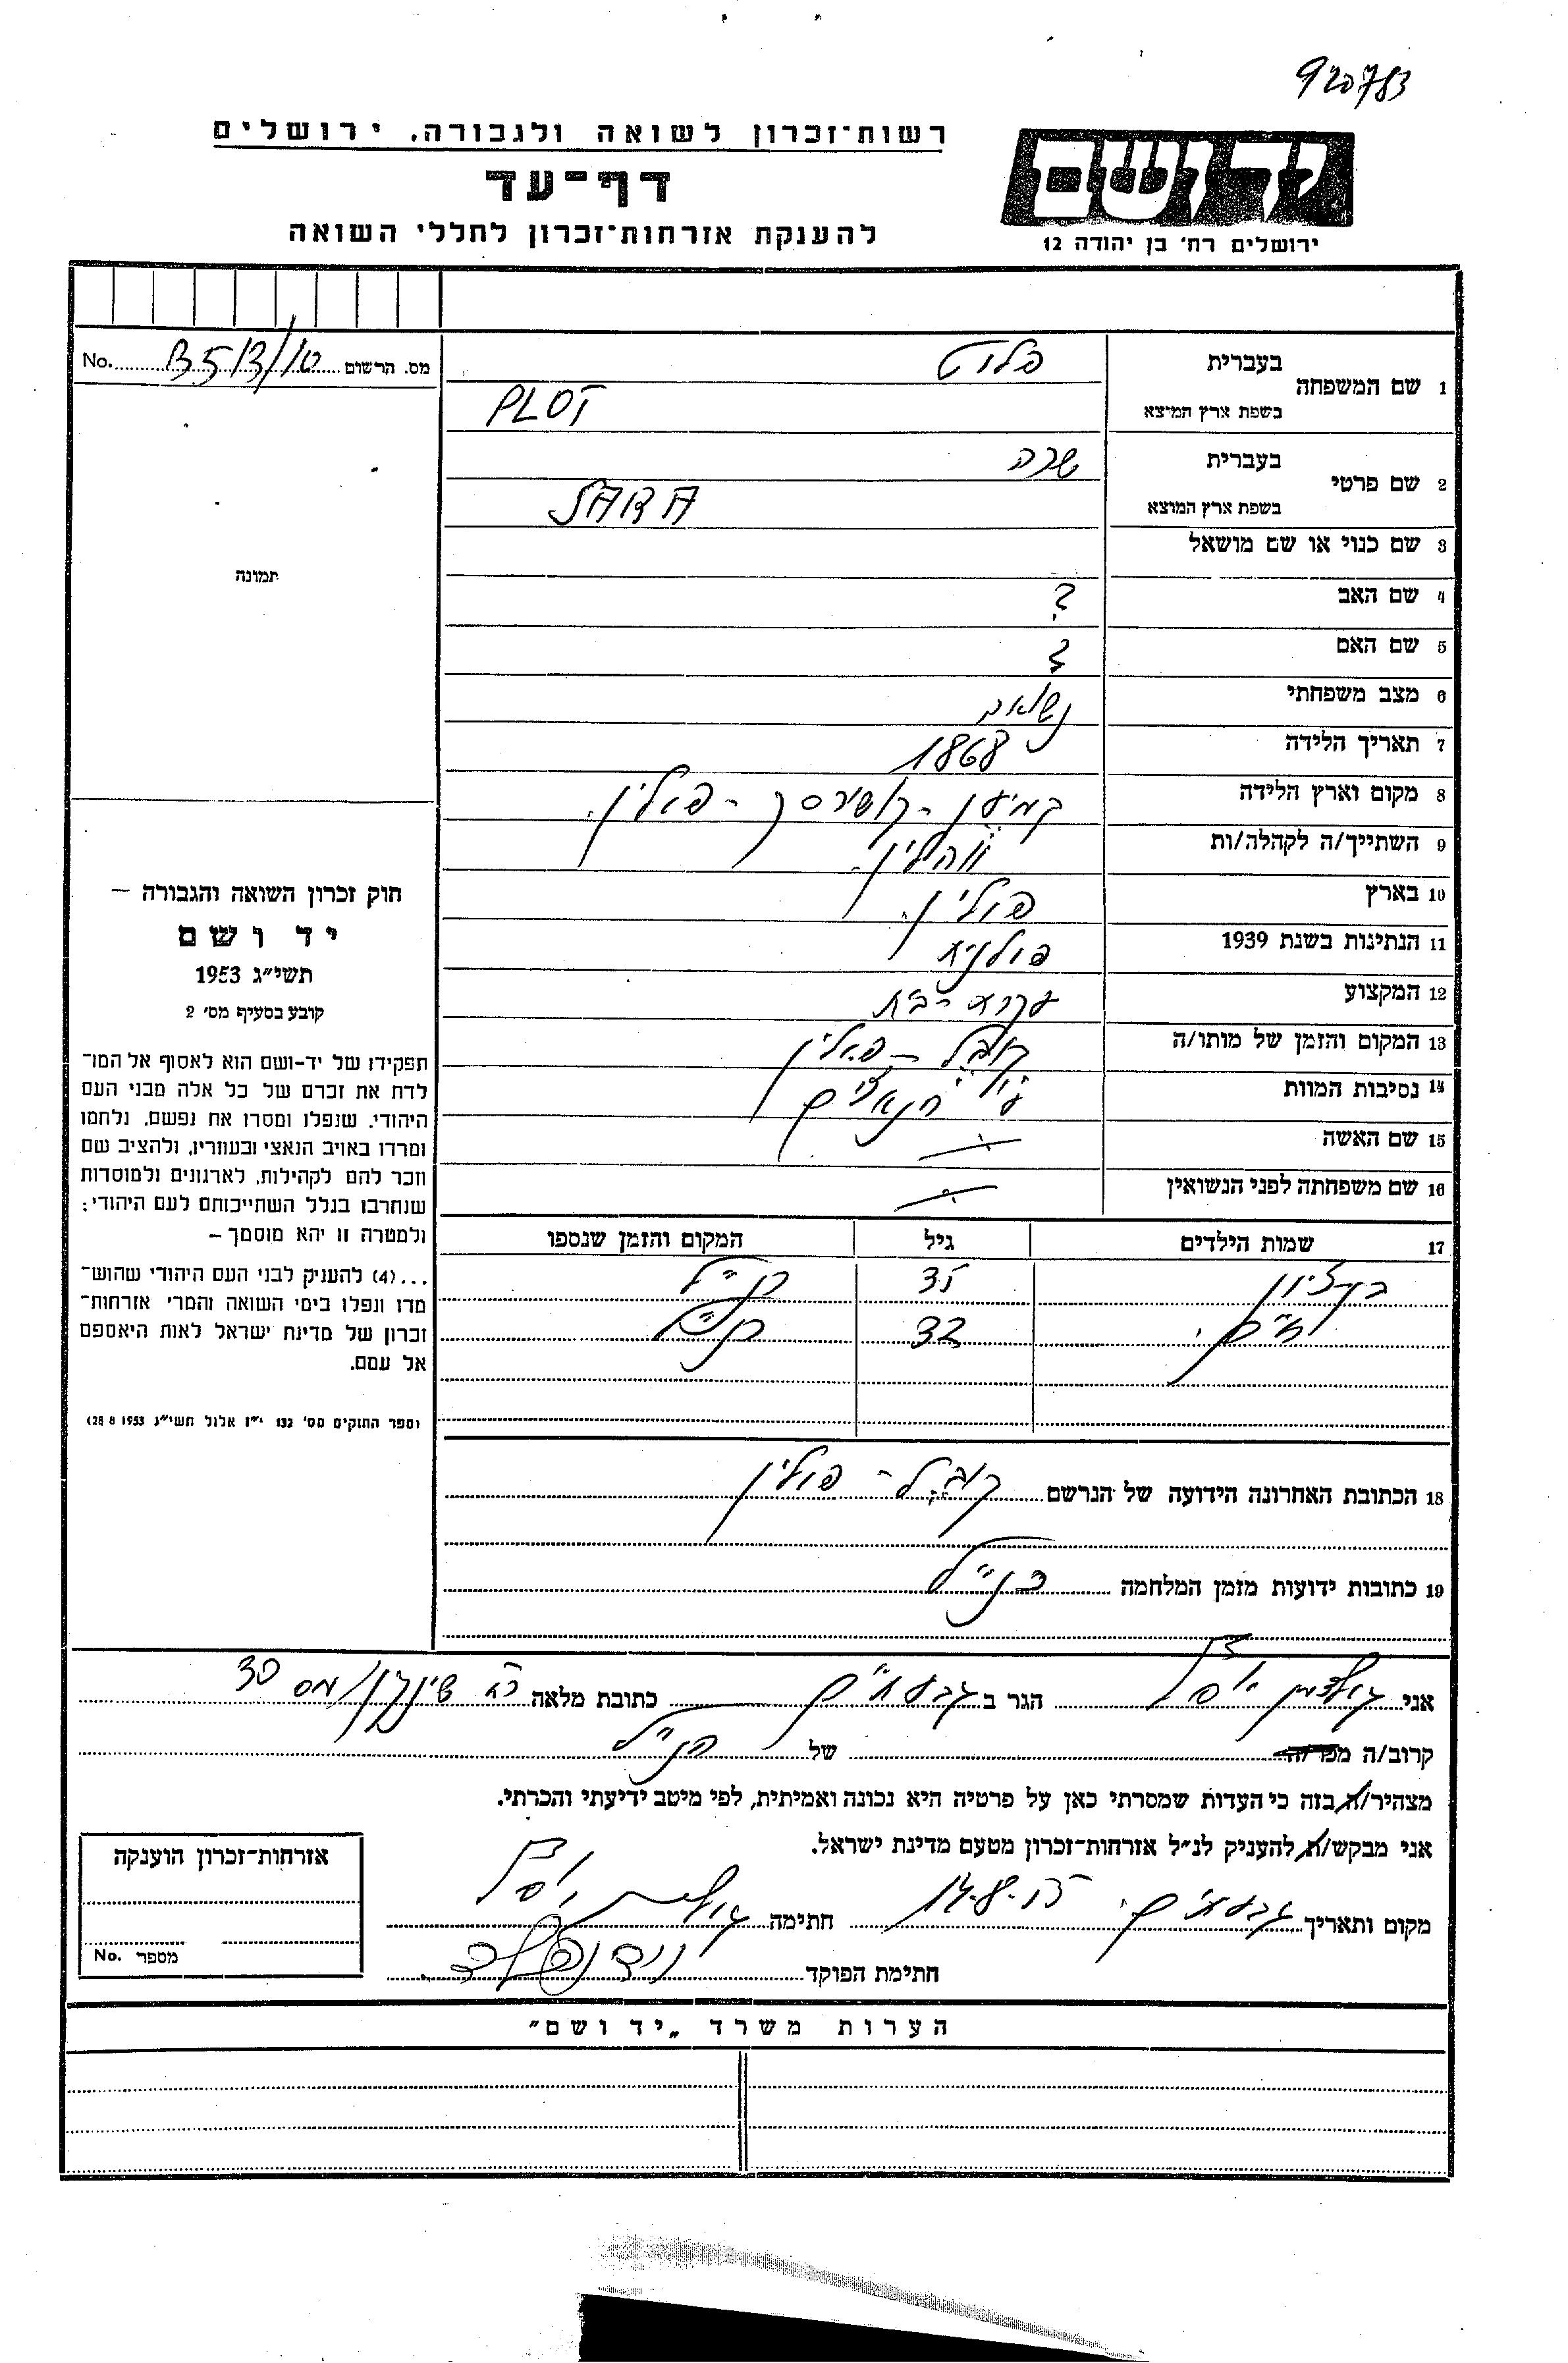 920783
יד ושם
ירושלים רח' בן יהודה 12
רשות־זכרון לשואה ולגבורה, ירושלים
דף־עד
להענקת אזרחות־זכרון לחללי השואה
מס. הרשום No.
1 שם המשפחה בעברית פלוט
בשפת ארץ המיצא PLOT
2 שם פרטי בעברית שרה
בשפת ארץ המוצא SARA
3 שם כנוי או שם מושאל
4 שם האב ?
5 שם האם ?
6 מצב משפחתי נשואה
7 תאריך הלידה 1868
8 מקום וארץ הלידה קמיען - קושירסקי - פולין.
9 השתייך/ה לקהלה/ות ווהלין
10 בארץ פולין.
11 הנתינות בשנת 1939 פולנית
12 המקצוע עקרת - בית
13 המקום והזמן של מותו/ה קובל - פולין
14 נסיבות המוות ע"י הנאצים
15 שם האשה
16 שם משפחתה לפני הנשואין
17 שמות הילדים גיל המקום והזמן שנספו
בן-ציון 35 כנ"ל
חיים. 32 כנ"ל
18 הכתובת האחרונה הידועה של הנרשם קובל - פולין
19 כתובות ידועות מזמן המלחמה כנ"ל
תמונה
חוק זכרון השואה והגבורה –
יד ושם
תשי״ג 1953
קובע בסעיף מס' 2
תפקידו של יד-ושם הוא לאסוף אל המו־
לדת את זכרם של כל אלה מבני העם
היהודי, שנפלו ומסרו את נפשם, נלחמו
ומרדו באויב הנאצי ובעוזריו, ולהציב שם
וזכר להם לקהילות, לארגונים ולמוסדות
שנחרבו בגלל השתייכותם לעם היהודי;
ולמטרה זו יהא מוסמך –
...(4) להעניק לבני העם היהודי שהוש־
מדו ונפלו בימי השואה והמרי אזרחות־
זכרון של מדינת ישראל לאות היאספם
אל עמם.
(ספר החוקים מס' 132 י״ז אלול תשי״ג 28 8 1953)
אני יוסף הגר ב גבעתיים כתובת מלאה רח' שינקין מס 30
קרוב/ה של הנ"ל
מצהיר/ה בזה כי העדות שמסרתי כאן על פרטיה היא נכונה ואמיתית, לפי מיטב ידיעתי והכרתי.
אני מבקש/ת להעניק לנ״ל אזרחות־זכרון מטעם מדינת ישראל.
מקום ותאריך גבעתיים. 14.8.55 חתימה יוסף
חתימת הפוקד
אזרחות־זכרון הוענקה
מספר No.
הערות משרד „יד ושם"